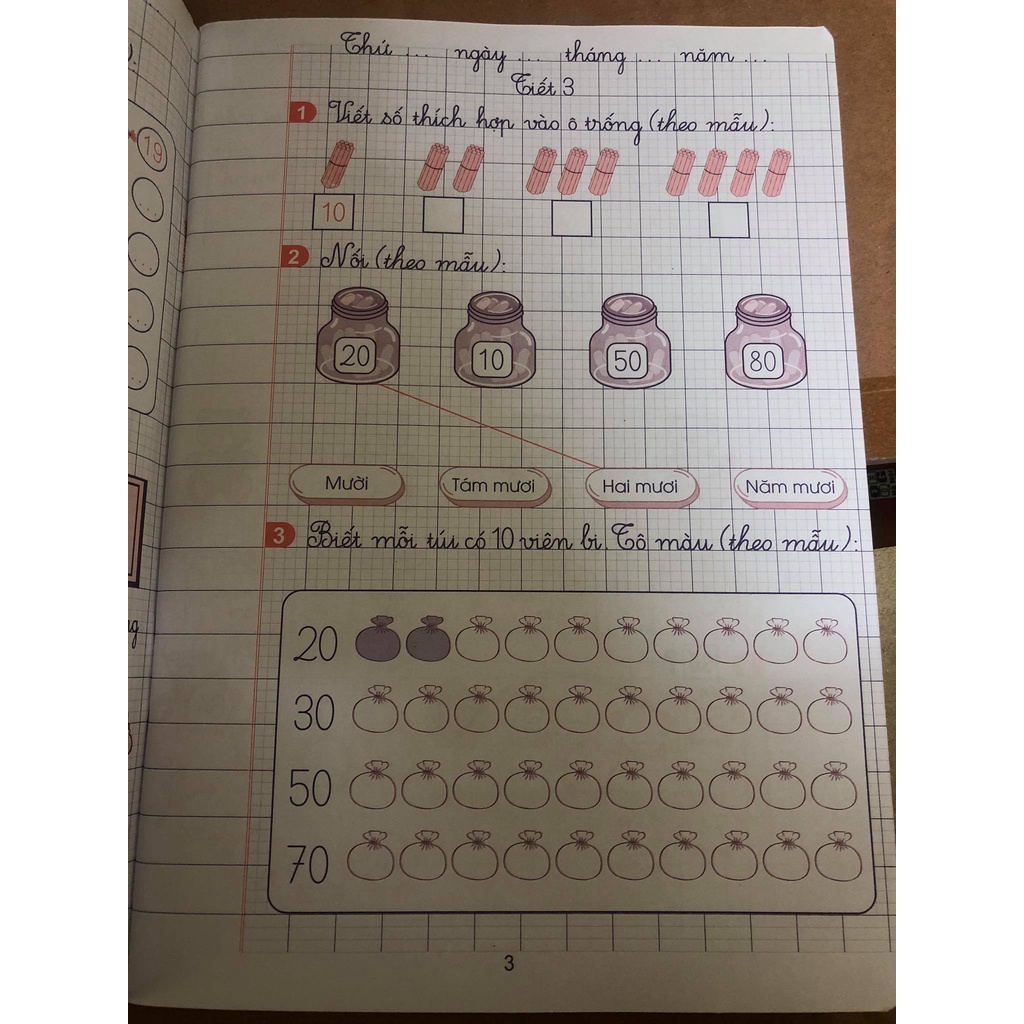 Thứ ... ngày ... tháng ... năm ...
Tiết 3
1 Viết số thích hợp vào ô trống (theo mẫu):
10
2 Nối (theo mẫu):
20 10 50 80
Mười Tám mươi Hai mươi Năm mươi
3 Biết mỗi túi có 10 viên bi. Tô màu (theo mẫu):
20
30
50
70
3
19